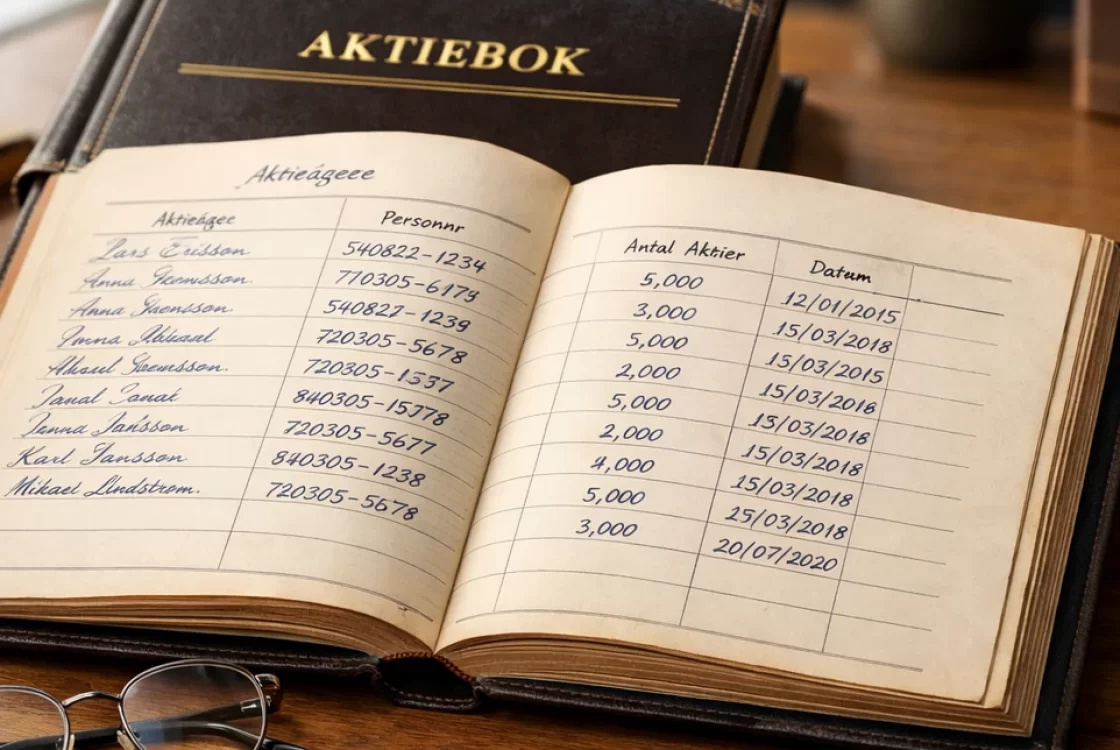 AKTIEBOK
Aktieágeee
Aktieágee Personnr Antal Aktier Datum
Lars Erisson 540822-1234 5,000 12/01/2015
Anna 770305-6179 3,000 15/03/2018
Anna 540827-1239 5,000 15/03/2015
720305-5678 2,000 15/03/2018
720305-1537 5,000 15/03/2018
840305-15778 2,000 15/03/2018
Jansson 720305-5677 4,000 15/03/2018
Karl Jansson 840305-1238 5,000 25/03/2018
Mikael Lindstrom. 720305-5678 3,000 20/07/2020